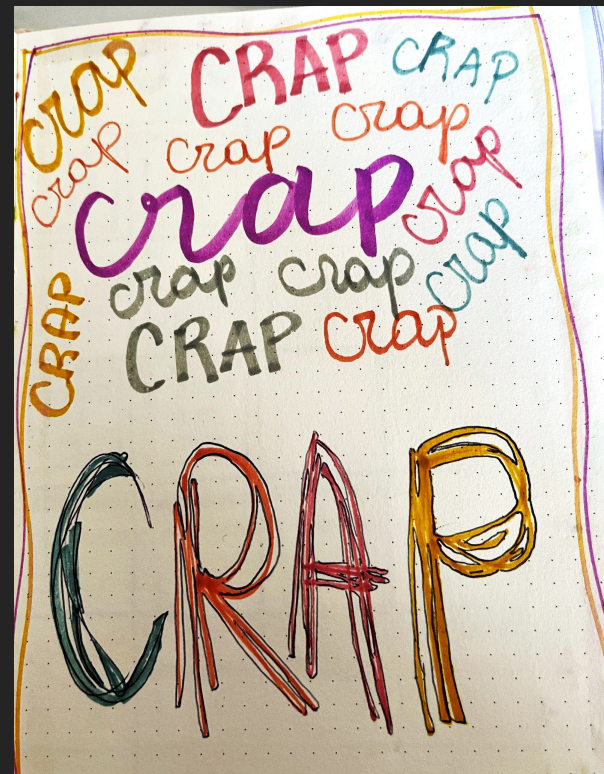 crap CRAP CRAP
crap crap crap
crap crap
crap crap crap
CRAP CRAP crap
CRAP